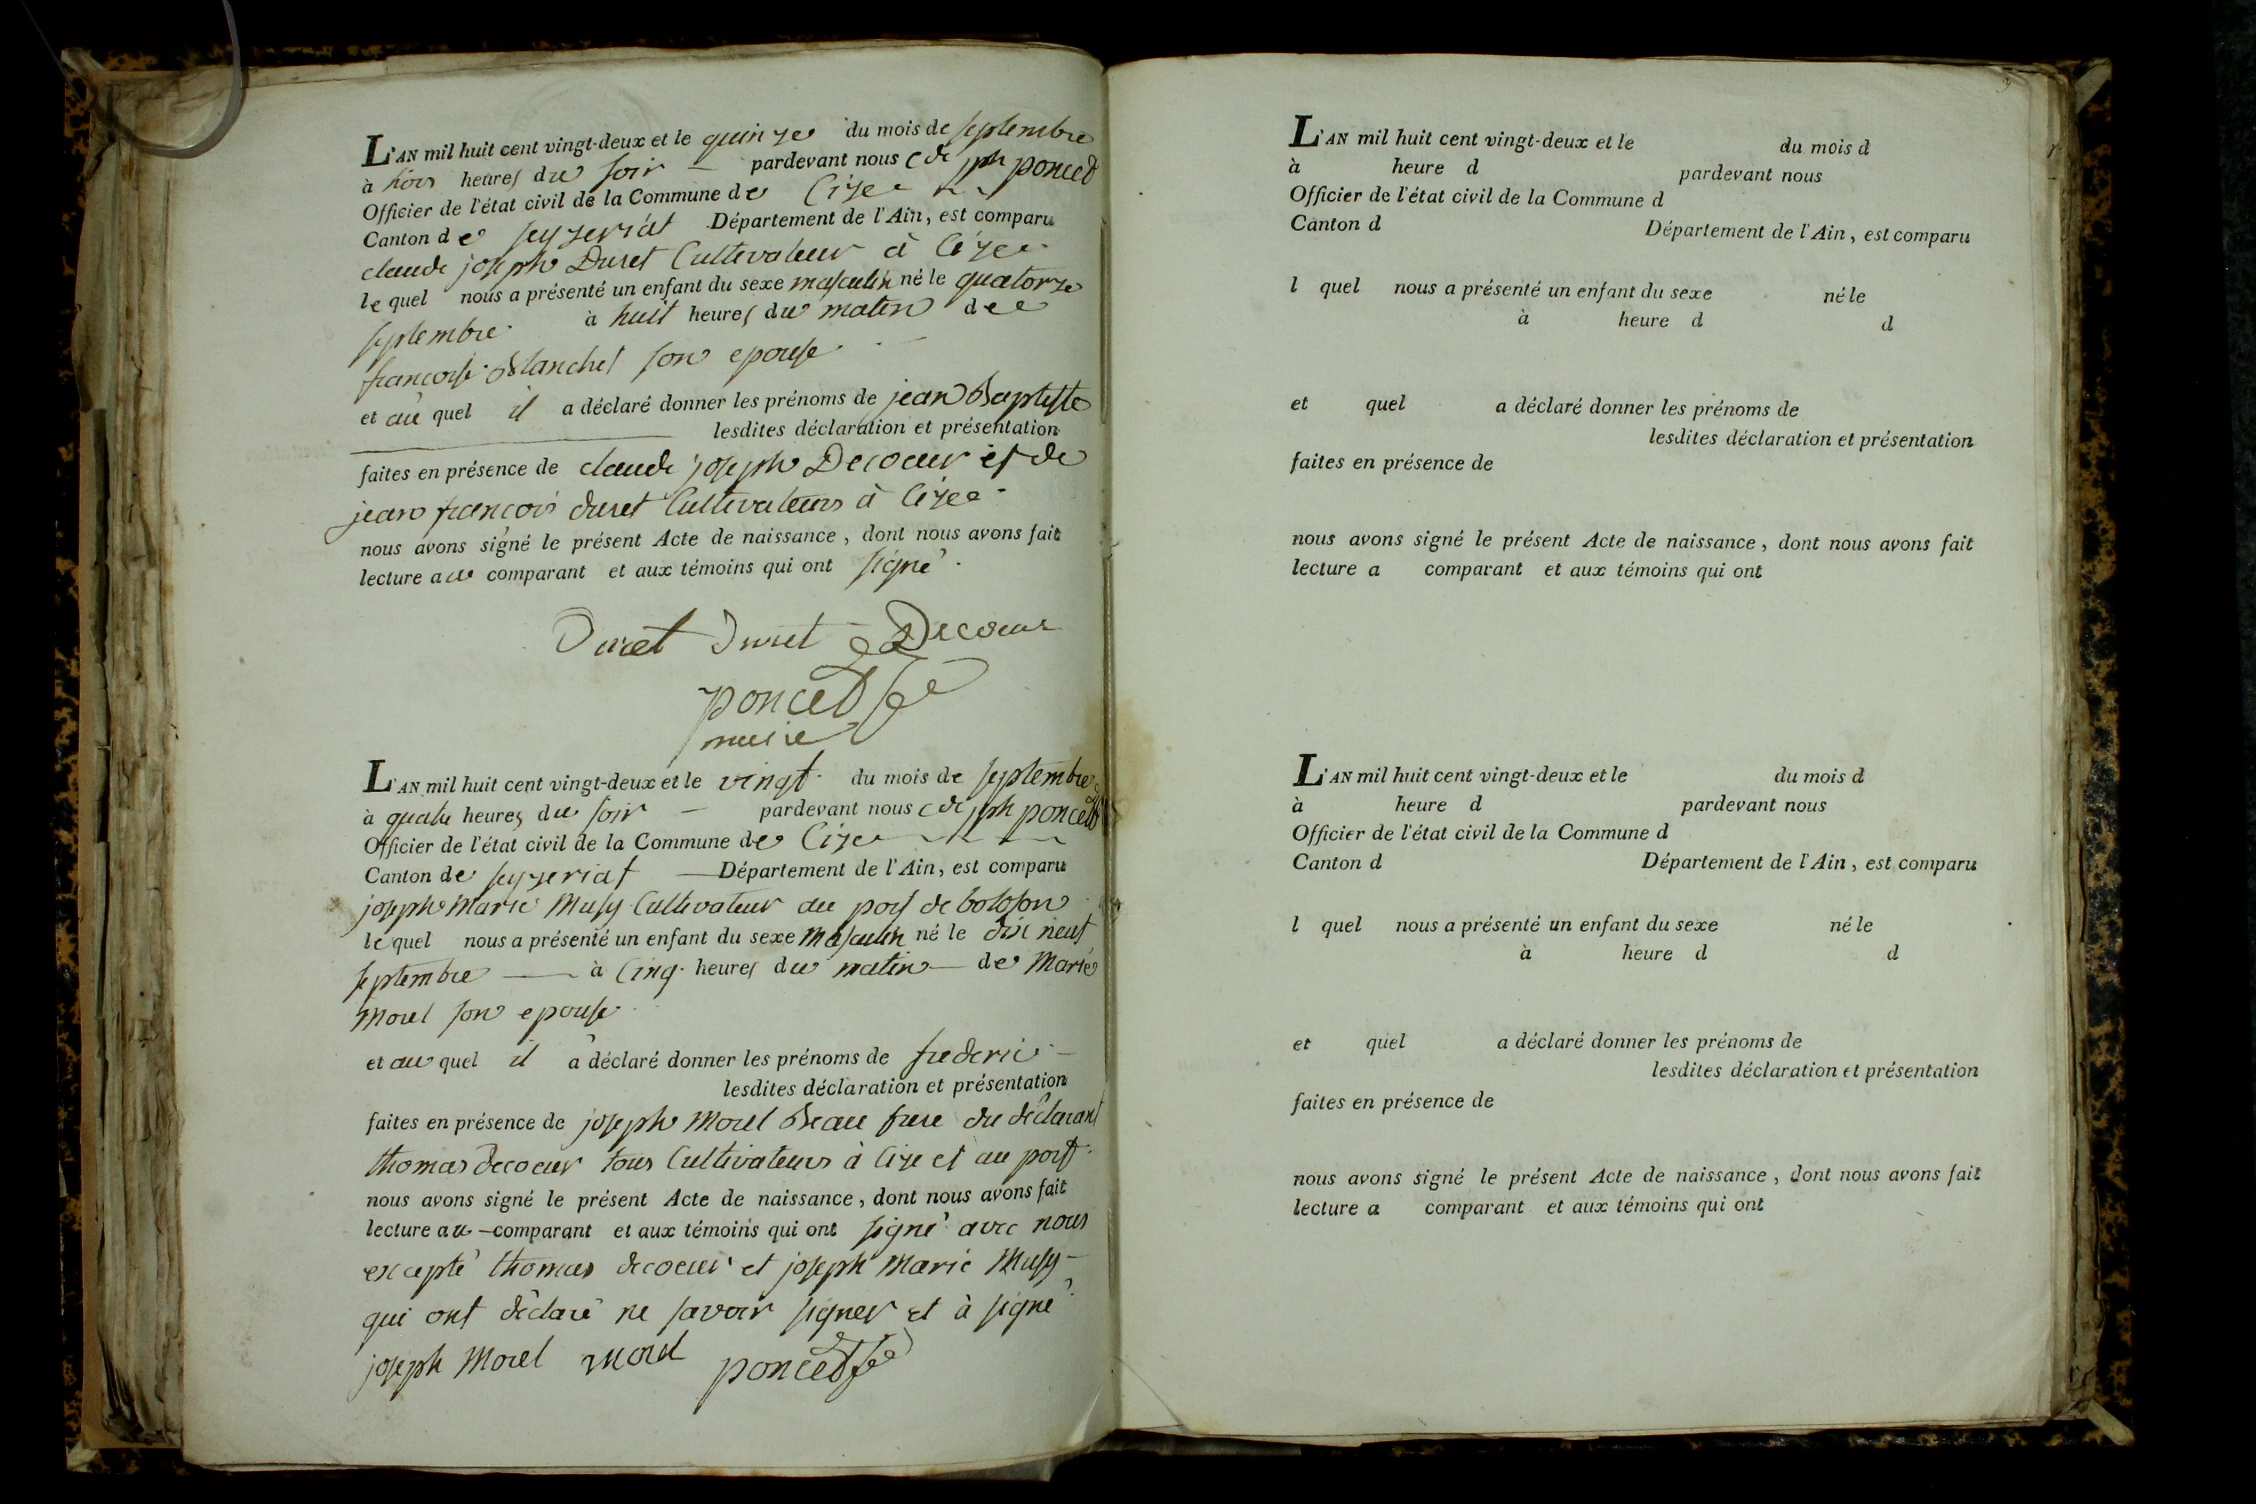 L'AN mil huit cent vingt-deux et le quinze du mois de septembre
à trois heures du soir — pardevant nous cde jph poncet
Officier de l'état civil de la Commune de Cize
Canton de seyzeriat Département de l'Ain, est comparu
claude joseph Duret Cultivateur à Cize
lequel nous a présenté un enfant du sexe masculin né le quatorze
septembre à huit heures du matin de
francoise Blanchet son epouse
et au quel il a déclaré donner les prénoms de jean Baptiste
lesdites déclaration et présentation
faites en présence de claude joseph Decoeur et de
jean francois duret Cultivateurs à Cize
nous avons signé le présent Acte de naissance, dont nous avons fait
lecture au comparant et aux témoins qui ont signé.
Duret Duret Decoeur
poncet
maire
L'AN mil huit cent vingt-deux et le vingt du mois de septembre
à quatre heures du soir — pardevant nous cde jph poncet
Officier de l'état civil de la Commune de Cize
Canton de seyzeriat — Département de l'Ain, est comparu
joseph Marie Musy Cultivateur au port de boloson
lequel nous a présenté un enfant du sexe masculin né le dix neuf
septembre — à Cinq heures du matin — de Marie
Morel son epouse
et au quel il a déclaré donner les prénoms de frederic —
lesdites déclaration et présentation
faites en présence de joseph Morel Beau frere du déclarant
thomas decoeur tous Cultivateurs à Cize et au port
nous avons signé le présent Acte de naissance, dont nous avons fait
lecture au — comparant et aux témoins qui ont signé avec nous
excepté thomas decoeur et joseph Marie Musy —
qui ont déclaré ne savoir signer et à signé
joseph Morel morel poncet
L'AN mil huit cent vingt-deux et le du mois d
à heure d pardevant nous
Officier de l'état civil de la Commune d
Canton d Département de l'Ain, est comparu
l quel nous a présenté un enfant du sexe né le
à heure d d
et quel a déclaré donner les prénoms de
lesdites déclaration et présentation
faites en présence de
nous avons signé le présent Acte de naissance, dont nous avons fait
lecture a comparant et aux témoins qui ont
L'AN mil huit cent vingt-deux et le du mois d
à heure d pardevant nous
Officier de l'état civil de la Commune d
Canton d Département de l'Ain, est comparu
l quel nous a présenté un enfant du sexe né le
à heure d d
et quel a déclaré donner les prénoms de
lesdites déclaration et présentation
faites en présence de
nous avons signé le présent Acte de naissance, dont nous avons fait
lecture a comparant et aux témoins qui ont